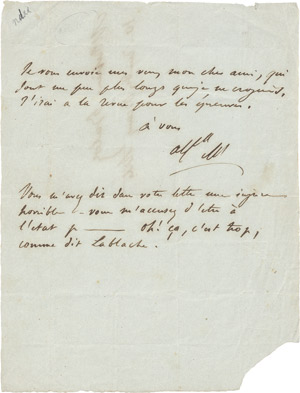 Je vous envoie mes vers, mon cher ami, qui
sont un peu plus longs que je ne croyais.
J'irai a la revue pour les épreuves.
à vous
Alf d Mt
Vous m'avez dit dans votre lettre une injure
horrible - vous m'accusez d'être à
l'état p——— oh! ça, c'est trop,
comme dit Lablache.